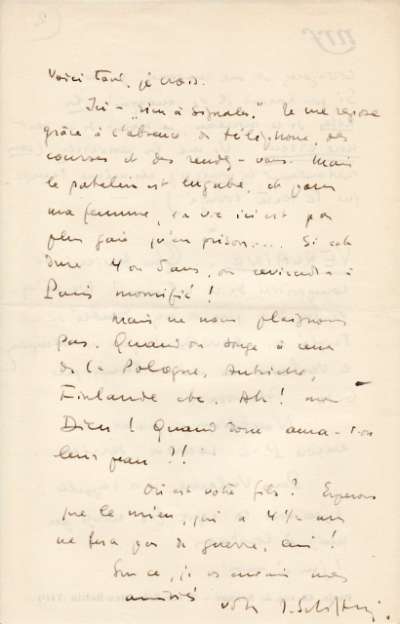 2
nrf
Voici tout, je crois.
Ici – "rien à signaler". Je me repose
grâce à l'absence de téléphone, des
courses et des rendez-vous. Mais
le patelin est lugubre, et pour
ma femme, la vie ici est pas
plus gaie qu'en prison.... Si cela
dure 4 ou 5 ans, on reviendra à
Paris momifié !
Mais ne nous plaignons
pas. Quand on songe à ceux
de la Pologne, Autriche,
Finlande etc. Ah ! mon
Dieu ! Quand donc aura-t'on
leur peau ?!
Où est votre fils ? Espérons
que le mien, qui a 4 ½ ans
ne fera pas de guerre, lui !
Sur ce, je vs envoie mes
amitiés
votre J. Schiffrin.